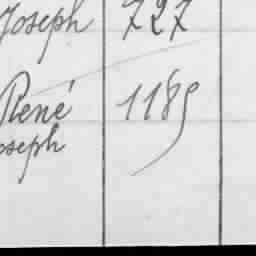 Joseph 727
René 1189
Joseph